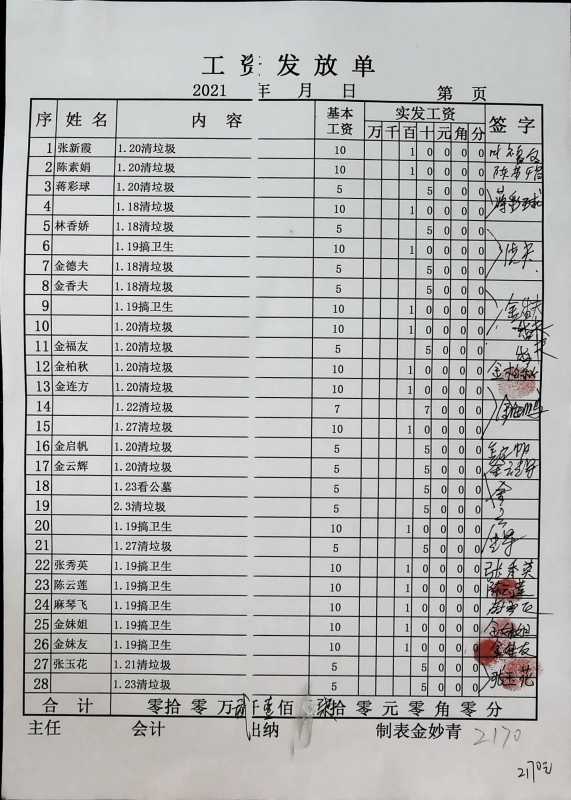 工资发放单
2021 年 月 日 第 页
序 姓名 内容 基本工资 实发工资 签字
万 千 百 十 元 角 分
1 张新霞 1.20清垃圾 10 1 0 0 0 0
2 陈素娟 1.20清垃圾 10 1 0 0 0 0
3 蒋彩球 1.20清垃圾 5 5 0 0 0 蒋彩球
4 1.18清垃圾 10 1 0 0 0 0
5 林香娇 1.18清垃圾 5 5 0 0 0
6 1.19搞卫生 10 1 0 0 0 0
7 金德夫 1.18清垃圾 5 5 0 0 0
8 金香夫 1.18清垃圾 5 5 0 0 0
9 1.19搞卫生 10 1 0 0 0 0
10 1.20清垃圾 10 1 0 0 0 0
11 金福友 1.20清垃圾 5 5 0 0 0
12 金柏秋 1.20清垃圾 10 1 0 0 0 0 金柏秋
13 金连方 1.20清垃圾 10 1 0 0 0 0
14 1.22清垃圾 7 7 0 0 0
15 1.27清垃圾 10 1 0 0 0 0
16 金启帆 1.20清垃圾 5 5 0 0 0
17 金云辉 1.20清垃圾 5 5 0 0 0
18 1.23看公墓 5 5 0 0 0
19 2.3清垃圾 5 5 0 0 0
20 1.19搞卫生 10 1 0 0 0 0
21 1.27清垃圾 5 5 0 0 0
22 张秀英 1.19搞卫生 10 1 0 0 0 0 张秀英
23 陈云莲 1.19搞卫生 10 1 0 0 0 0 陈云莲
24 麻琴飞 1.19搞卫生 10 1 0 0 0 0
25 金妹姐 1.19搞卫生 10 1 0 0 0 0 金妹姐
26 金妹友 1.19搞卫生 10 1 0 0 0 0 金妹友
27 张玉花 1.21清垃圾 5 5 0 0 0 张玉花
28 1.23清垃圾 5 5 0 0 0
合计 零拾零万贰仟壹佰柒拾零元零角零分
主任 会计 出纳 制表金妙青 2170
2170元